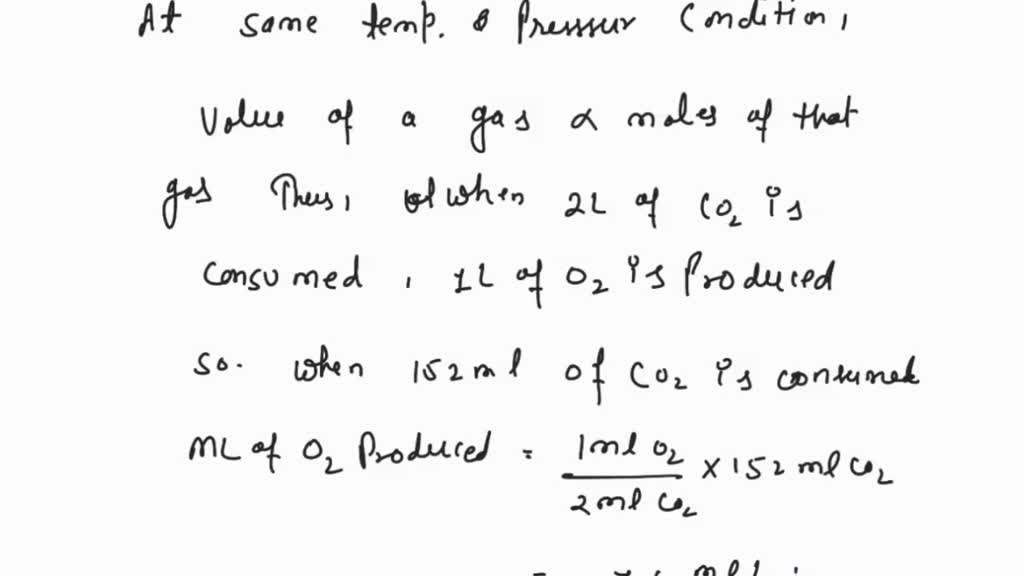 At same temp. & Pressur Condition,
Volue of a gas ∝ moles of that
gas Thus, when 2L of CO2 is
Consumed, 1L of O2 is Produced
So. when 152 ml of CO2 is consumed
ML of O2 Produced = 1ml O2 / 2ml CO2 × 152 ml CO2
=